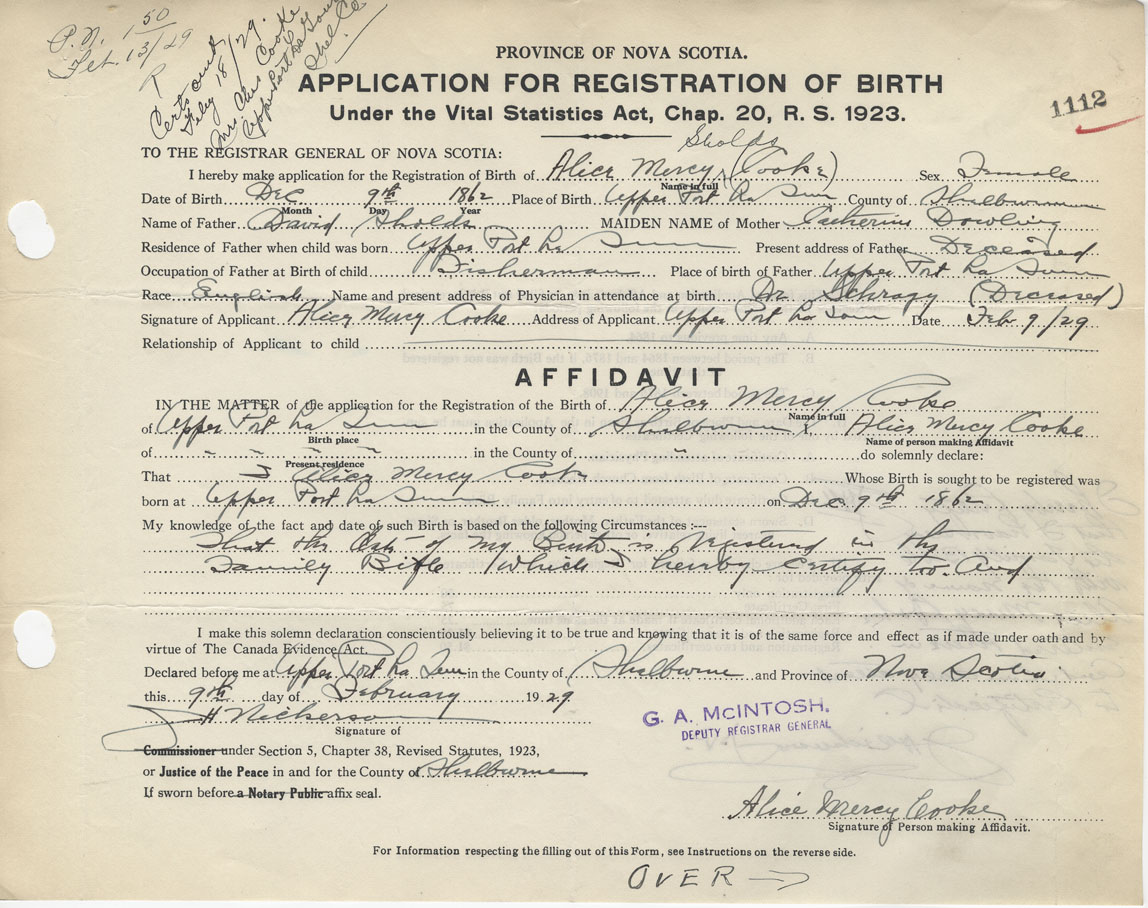 P.N. 1 50
Feb. 13/29
R
Certs out
Feby 18/29.
Mrs Chas Cooke
Upper Port La Tour
Shel. Co.
PROVINCE OF NOVA SCOTIA.
APPLICATION FOR REGISTRATION OF BIRTH
Under the Vital Statistics Act, Chap. 20, R. S. 1923.
1112
Sholds
TO THE REGISTRAR GENERAL OF NOVA SCOTIA:
I hereby make application for the Registration of Birth of Alice Mercy (Cooke) Sex Female
Name in full
Date of Birth Dec 9th 1862 Place of Birth Upper Port La Tour County of Shelburne
Month Day Year
Name of Father David Sholds MAIDEN NAME of Mother Catherine Dowling
Residence of Father when child was born Upper Port La Tour Present address of Father Deceased
Occupation of Father at Birth of child Fisherman Place of birth of Father Upper Port La Tour
Race English Name and present address of Physician in attendance at birth Dr (Deceased)
Signature of Applicant Alice Mercy Cooke Address of Applicant Upper Port La Tour Date Feb 9/29
Relationship of Applicant to child
AFFIDAVIT
IN THE MATTER of the application for the Registration of the Birth of Alice Mercy Cooke
Name in full
of Upper Port La Tour in the County of Shelburne I, Alice Mercy Cooke
Birth place Name of person making Affidavit
of " " " " in the County of " do solemnly declare:
Present residence
That I Alice Mercy Cooke Whose Birth is sought to be registered was
born at Upper Port La Tour on Dec 9th 1862
My knowledge of the fact and date of such Birth is based on the following Circumstances :---
That the Date of my Birth is registered in the
Family Bible which I hereby Certify to. And
I make this solemn declaration conscientiously believing it to be true and knowing that it is of the same force and effect as if made under oath and by
virtue of The Canada Evidence Act.
Declared before me at Upper Port La Tour in the County of Shelburne and Province of Nova Scotia
this 9th day of February 1929
J H Nickerson
Signature of
G. A. McINTOSH.
DEPUTY REGISTRAR GENERAL
Commissioner under Section 5, Chapter 38, Revised Statutes, 1923,
or Justice of the Peace in and for the County of Shelburne
If sworn before a Notary Public affix seal.
Alice Mercy Cooke
Signature of Person making Affidavit.
For Information respecting the filling out of this Form, see Instructions on the reverse side.
OVER →